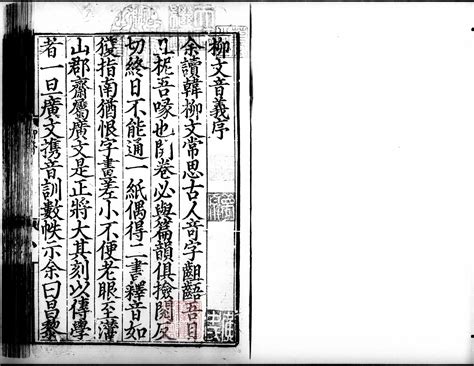 柳文音義序
余讀韓柳文常思古人奇字齟齬吾目
棘吾喙也開卷必與篇韻俱撿閱反
切終日不能通一紙偶得二書釋音如
獲指南猶恨字畫差小不便老眼至藩
山郡齋屬廣文是正將大其刻以傳學
者一旦廣文攜音訓數帙示余曰昌黎